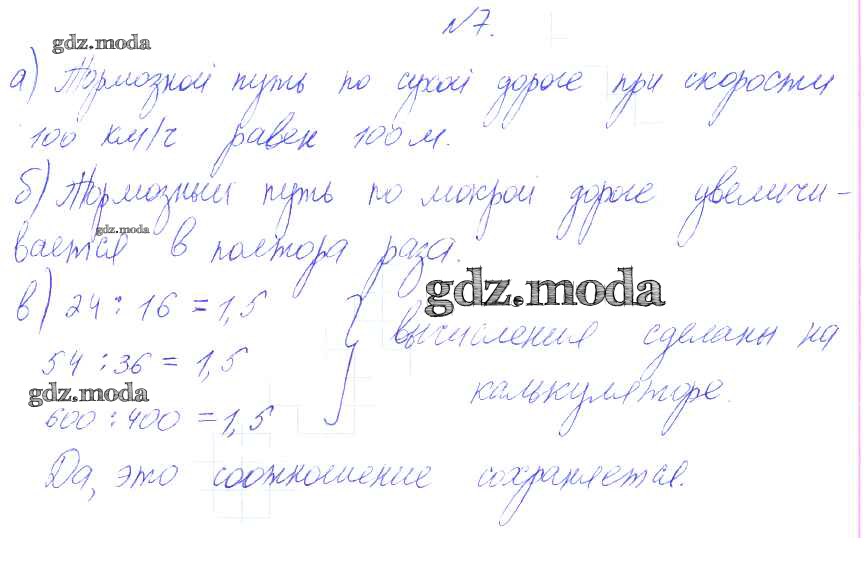 №7.
gdz.moda
а) Тормозной путь по сухой дороге при скорости
100 км/ч равен 100 м.
б) Тормозный путь по мокрой дороге увеличи-
gdz.moda
вается в полтора раза.
gdz.moda
в) 24 : 16 = 1,5
вычисления сделаны на
54 : 36 = 1,5
gdz.moda
калькуляторе.
600 : 400 = 1,5
Да, это соотношение сохраняется.